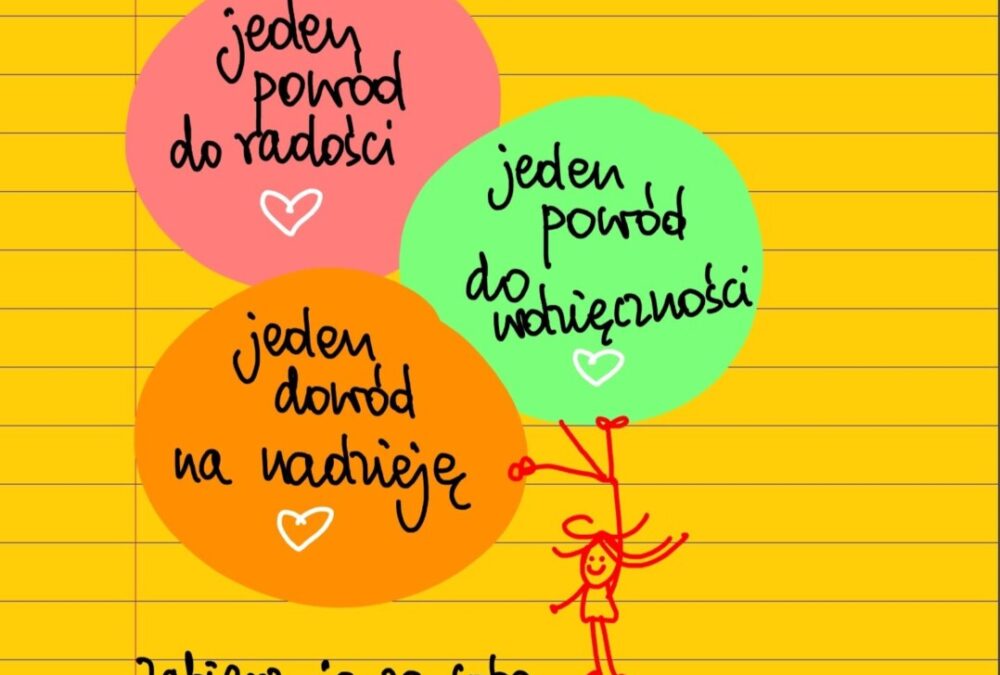 jeden
powód
do radości
jeden
powód
do
wdzięczności
jeden
dowód
na nadzieję